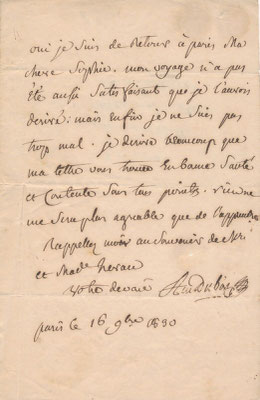 oui je suis de retour à paris Ma
chere Sophie. mon voyage n'a pas
été aussi satisfaisant que je l'aurois
desiré. mais enfin je ne suis pas
trop mal. je desire beaucoup que
ma lettre vous trouve en bonne santé
et contente sous tous points. rien ne
me sera plus agreable que de l'apprendre
Rappellez moi au souvenir de Mr
et Made
votre devoué
paris le 16 9bre 1830